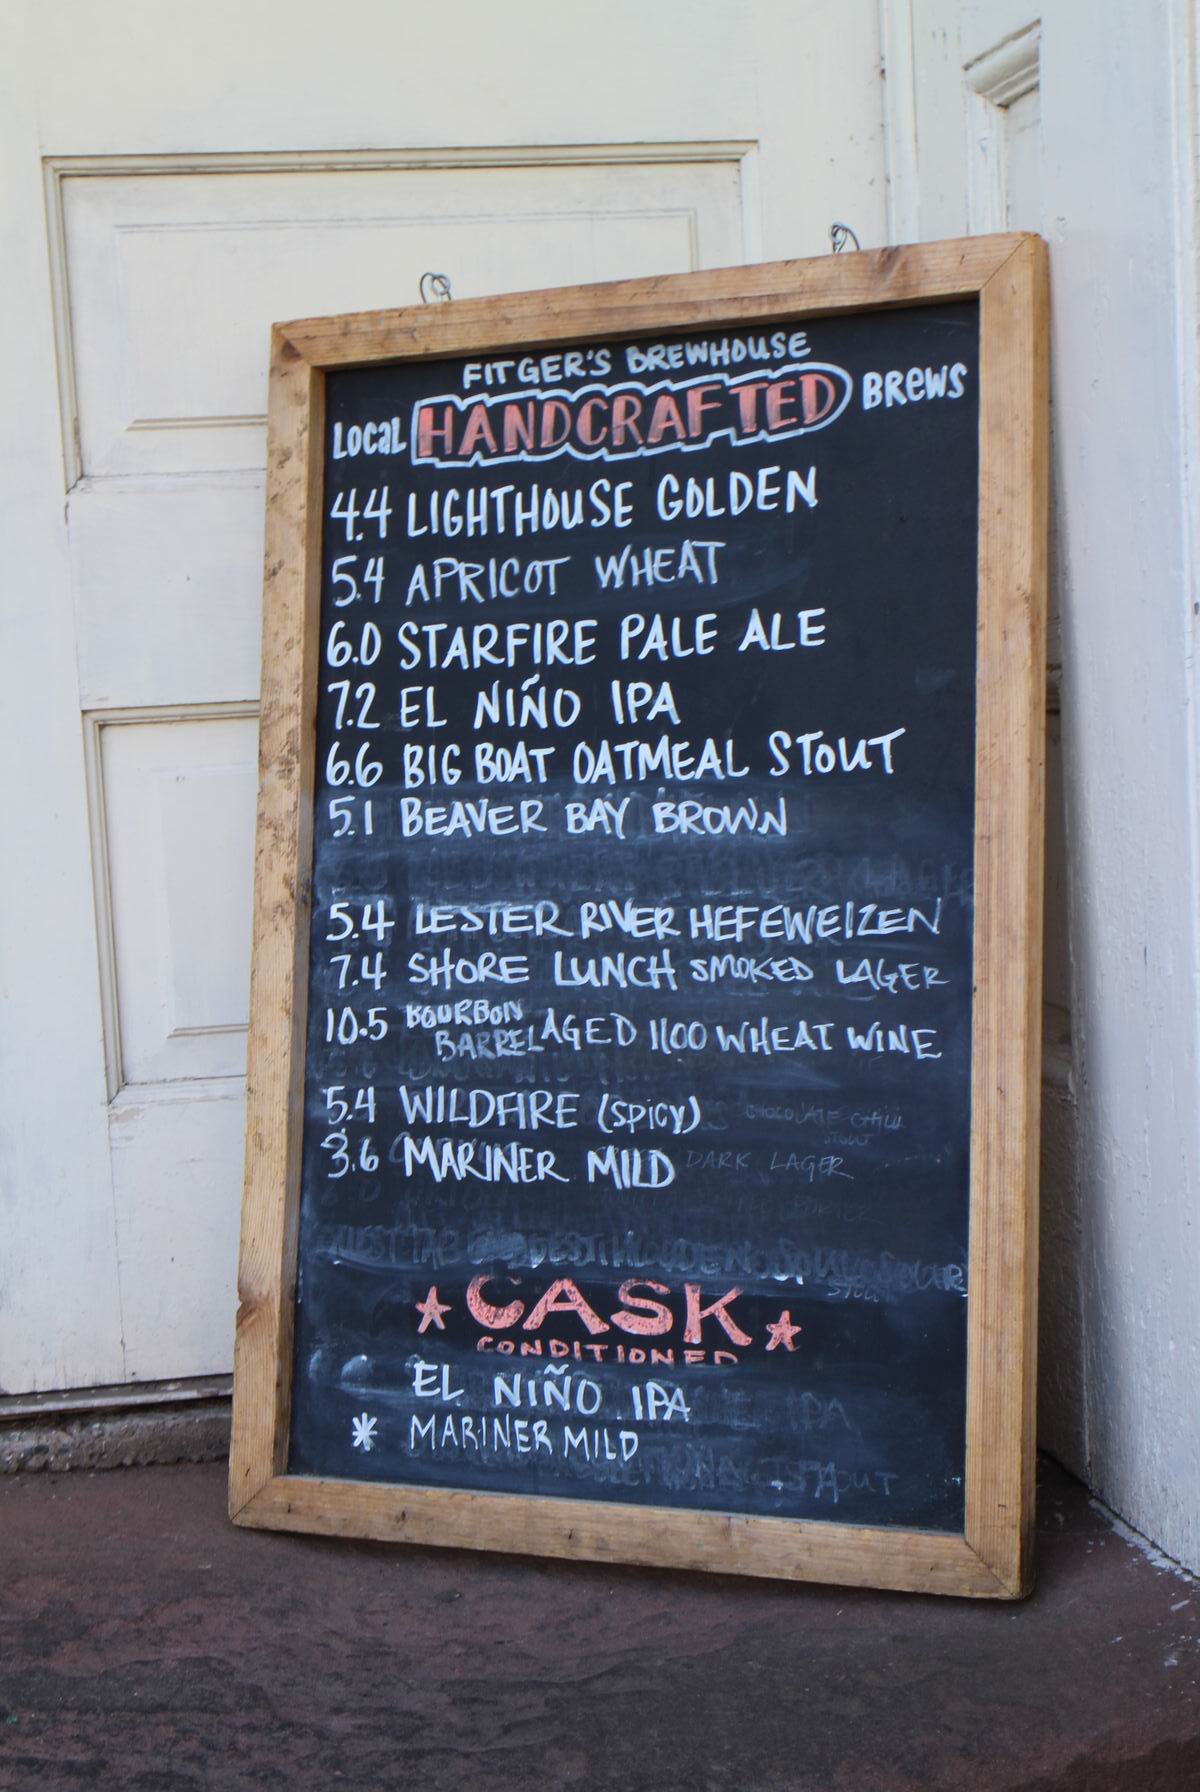 FITGER'S BREWHOUSE
LOCAL HANDCRAFTED BREWS
4.4 LIGHTHOUSE GOLDEN
5.4 APRICOT WHEAT
6.0 STARFIRE PALE ALE
7.2 EL NIÑO IPA
6.6 BIG BOAT OATMEAL STOUT
5.1 BEAVER BAY BROWN
5.4 LESTER RIVER HEFEWEIZEN
7.4 SHORE LUNCH SMOKED LAGER
10.5 BOURBON BARREL AGED 1100 WHEAT WINE
5.4 WILDFIRE (SPICY)
CHOCOLATE CHILI
STOUT
3.6 MARINER MILD
DARK LAGER
★ CASK ★
CONDITIONED
EL NIÑO IPA
* MARINER MILD